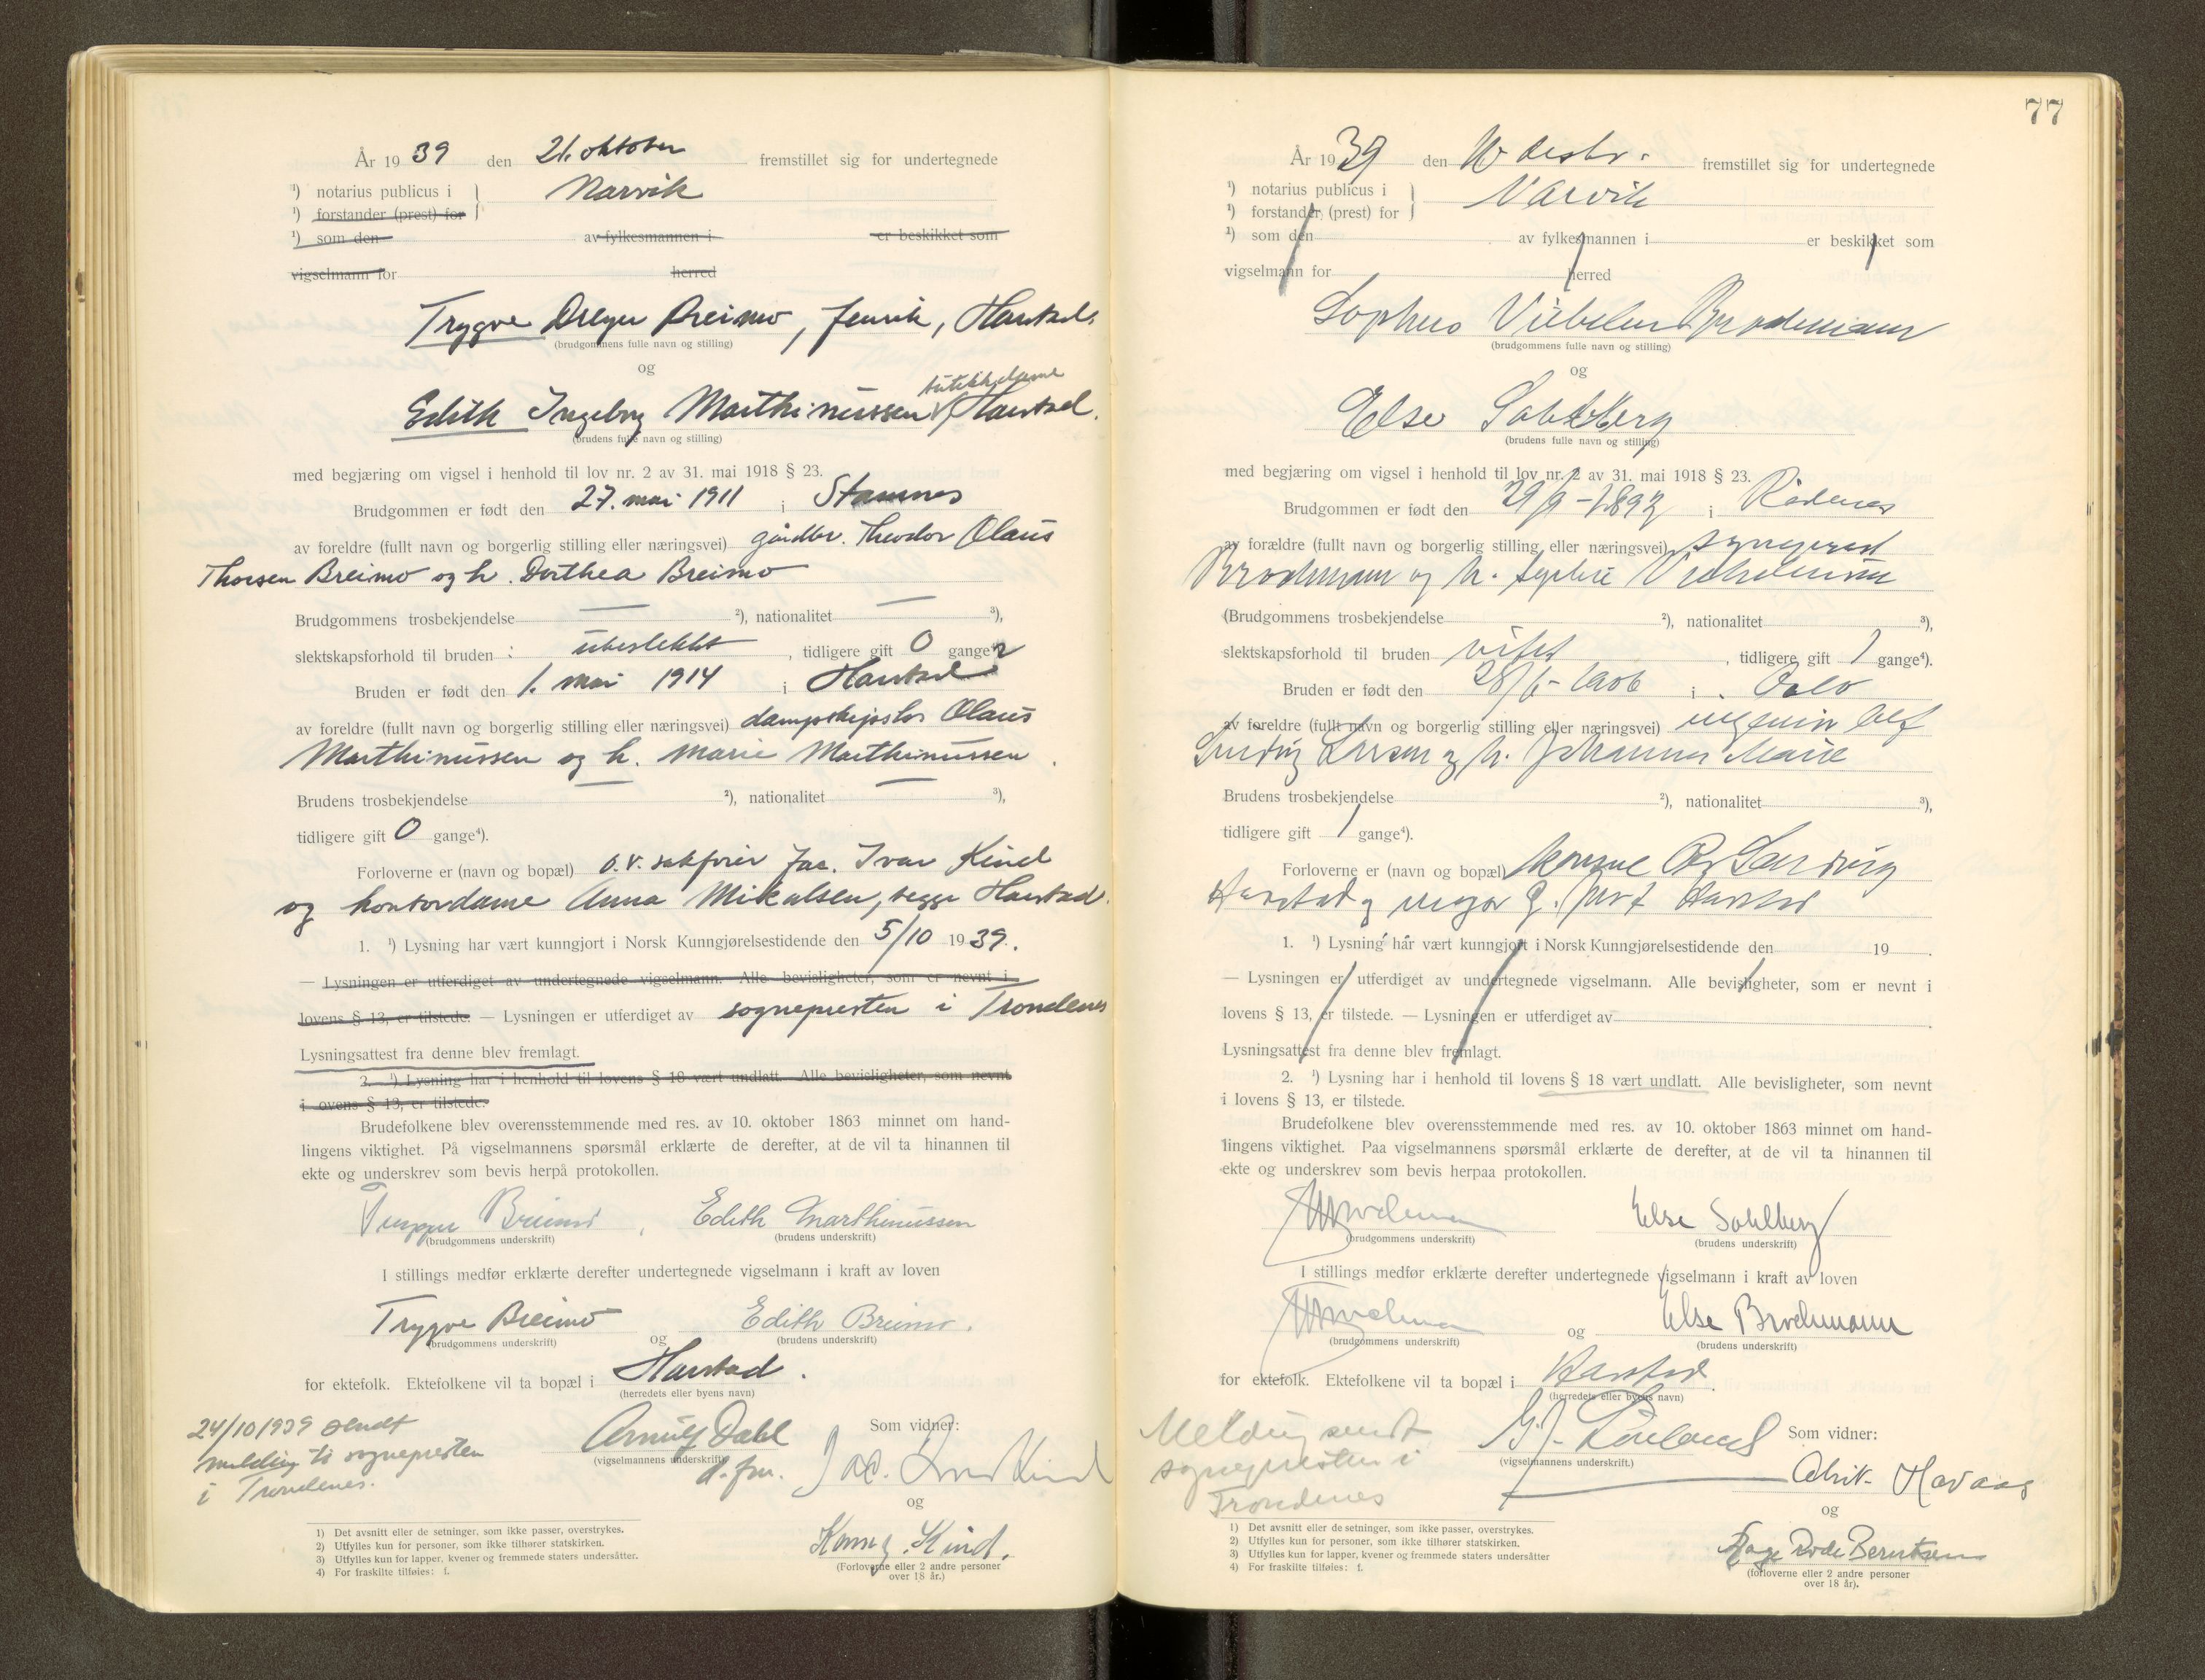 År 19 39 den 21. oktober fremstillet sig for undertegnede
¹) notarius publicus i } Narvik
¹) forstander (prest) for
¹) som den av fylkesmannen i er beskikket som
vigselmann for herred
Trygve Dreyer Breimo, Harstad.
(brudgommens fulle navn og stilling)
og
butikkdame
Edith Ingeborg Marthinussen, Harstad.
(brudens fulle navn og stilling)
med begjæring om vigsel i henhold til lov nr. 2 av 31. mai 1918 § 23.
Brudgommen er født den 27. mai 1911 i Stamnes
av foreldre (fullt navn og borgerlig stilling eller næringsvei) gårdbr. Theodor Olaus
Thorsen Breimo og h. Dorthea Breimo
Brudgommens trosbekjendelse — ²), nationalitet — ³),
slektskapsforhold til bruden : ubeslektet , tidligere gift 0 ganger
Bruden er født den 1. mai 1914 i Harstad
av foreldre (fullt navn og borgerlig stilling eller næringsvei) dampskipsfor. Olaus
Marthinussen og h. Marie Marthinussen .
Brudens trosbekjendelse — ²), nationalitet — ³),
tidligere gift 0 gange⁴).
Forloverne er (navn og bopæl) o.r. sakfører Jac. Ivar Kind
og kontordame Anna Mikalsen, begge Harstad.
1. ¹) Lysning har vært kunngjort i Norsk Kunngjørelsestidende den 5/10 1939.
— Lysningen er utferdiget av undertegnede vigselmann. Alle bevisligheter, som er nevnt i
lovens § 13, er tilstede. — Lysningen er utferdiget av sognepresten i Trondenes
Lysningsattest fra denne blev fremlagt.
2. ¹) Lysning har i henhold til lovens § 18 vært undlatt. Alle bevisligheter, som nevnt
i lovens § 13, er tilstede.
Brudefolkene blev overensstemmende med res. av 10. oktober 1863 minnet om hand-
lingens viktighet. På vigselmannens spørsmål erklærte de derefter, at de vil ta hinannen til
ekte og underskrev som bevis herpå protokollen.
Trygve Breimo , Edith Marthinussen
(brudgommens underskrift) (brudens underskrift)
I stillings medfør erklærte derefter undertegnede vigselmann i kraft av loven
Trygve Breimo og Edith Breimo.
(brudgommens underskrift) (brudens underskrift)
for ektefolk. Ektefolkene vil ta bopæl i Harstad.
(herredets eller byens navn)
24/10 1939 sendt
melding til sognepresten
i Trondenes.
Arnulf Dahl
(vigselmannens underskrift)
d. fm.
Som vidner:
Jac. Ivar Kind
og
Kind.
(Forloverne eller 2 andre personer
over 18 år.)
1) Det avsnitt eller de setninger, som ikke passer, overstrykes.
2) Utfylles kun for personer, som ikke tilhører statskirken.
3) Utfylles kun for lapper, kvener og fremmede staters undersåtter.
4) For fraskilte tilføies: f.
77
År 1939 den desbr. fremstillet sig for undertegnede
¹) notarius publicus i } Narvik
¹) forstander (prest) for
¹) som den av fylkesmannen i er beskikket som
vigselmann for herred
Sophus Brochmann
(brudgommens fulle navn og stilling)
og
Else Sohlberg
(brudens fulle navn og stilling)
med begjæring om vigsel i henhold til lov nr. 2 av 31. mai 1918 § 23.
Brudgommen er født den 29/9-1893 i Rødenes
av forældre (fullt navn og borgerlig stilling eller næringsvei) sogneprest
Brochmann og h. Sophie
(Brudgommens trosbekjendelse ²), nationalitet ³),
slektskapsforhold til bruden intet , tidligere gift 1 gange⁴).
Bruden er født den 28/6-1906 i Oslo
av foreldre (fullt navn og borgerlig stilling eller næringsvei) ingeniør
Larsen og h. Johanna Marie
Brudens trosbekjendelse ²), nationalitet ³),
tidligere gift 1 gange⁴).
Forloverne er (navn og bopæl)
Harstad og major Harstad
1. ¹) Lysning har vært kunngjort i Norsk Kunngjørelsestidende den 19 .
— Lysningen er utferdiget av undertegnede vigselmann. Alle bevisligheter, som er nevnt i
lovens § 13, er tilstede. — Lysningen er utferdiget av .
Lysningsattest fra denne blev fremlagt.
2. ¹) Lysning har i henhold til lovens § 18 vært undlatt. Alle bevisligheter, som nevnt
i lovens § 13, er tilstede.
Brudefolkene blev overensstemmende med res. av 10. oktober 1863 minnet om hand-
lingens viktighet. Paa vigselmannens spørsmål erklærte de derefter, at de vil ta hinannen til
ekte og underskrev som bevis herpaa protokollen.
Brochmann Else Sohlberg
(brudgommens underskrift) (brudens underskrift)
I stillings medfør erklærte derefter undertegnede vigselmann i kraft av loven
Brochmann og Else Brochmann
(brudgommens underskrift) (brudens underskrift)
for ektefolk. Ektefolkene vil ta bopæl i Harstad .
(herredets eller byens navn)
Melding sendt
sognepresten i
Trondenes
(vigselmannens underskrift.)
Som vidner:
Havaas
og
Aage Rode Berntsen
(forloverne eller 2 andre personer
over 18 år).
1) Det avsnitt eller de setninger, som ikke passer, overstrykes.
2) Utfylles kun for personer, som ikke tilhører statskirken.
3) Utfylles kun for lapper, kvener og fremmede staters undersåtter
4) For fraskilte tilføies: f.